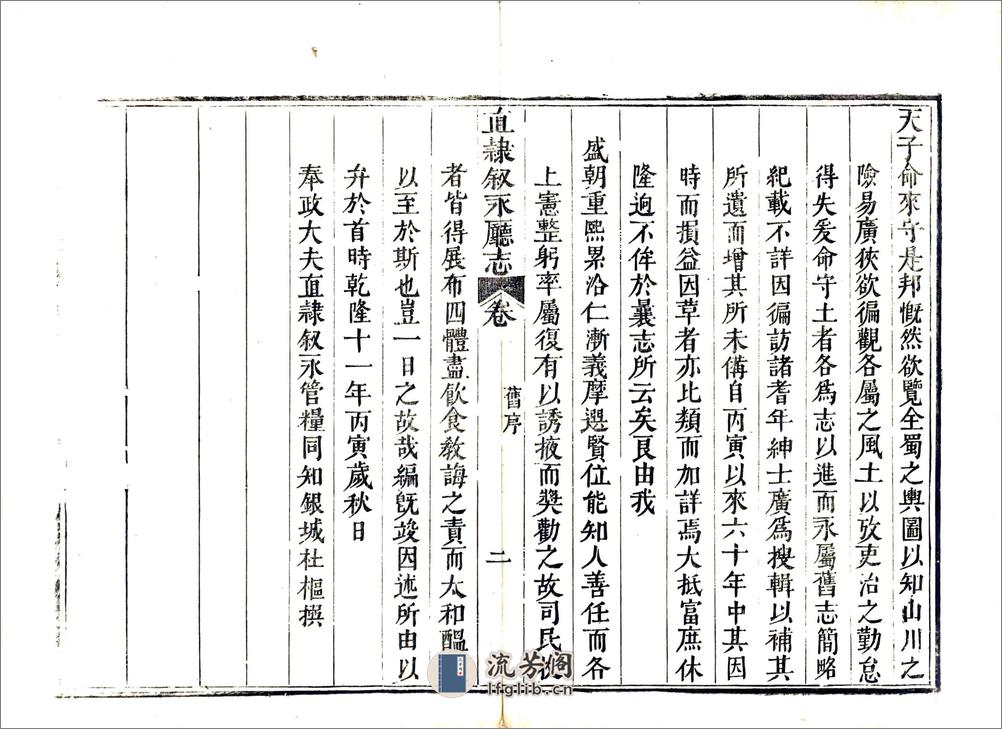 天子命來守是邦慨然欲覽全蜀之輿圖以知山川之
險易廣狹欲徧觀各屬之風土以攷吏治之勤怠
得失爰命守土者各爲志以進而永屬舊志簡略
紀載不詳因徧訪諸耆年紳士廣爲搜輯以補其
所遺而增其所未備自丙寅以來六十年中其因
時而損益因革者亦比類而加詳焉大抵富庶休
隆逈不侔於曩志所云矣良由我
盛朝重熙累洽仁漸義摩選賢位能知人善任而各
上憲整躬率屬復有以誘掖而奬勸之故司民牧
直隸叙永廳志 卷 舊序 二
者皆得展布四體盡飲食敎誨之責而太和醞
以至於斯也豈一日之故哉編旣竣因述所由以
弁於首時乾隆十一年丙寅歲秋日
奉政大夫直隸叙永管糧同知銀城杜樞撰
流芳阁
lfglib.cn